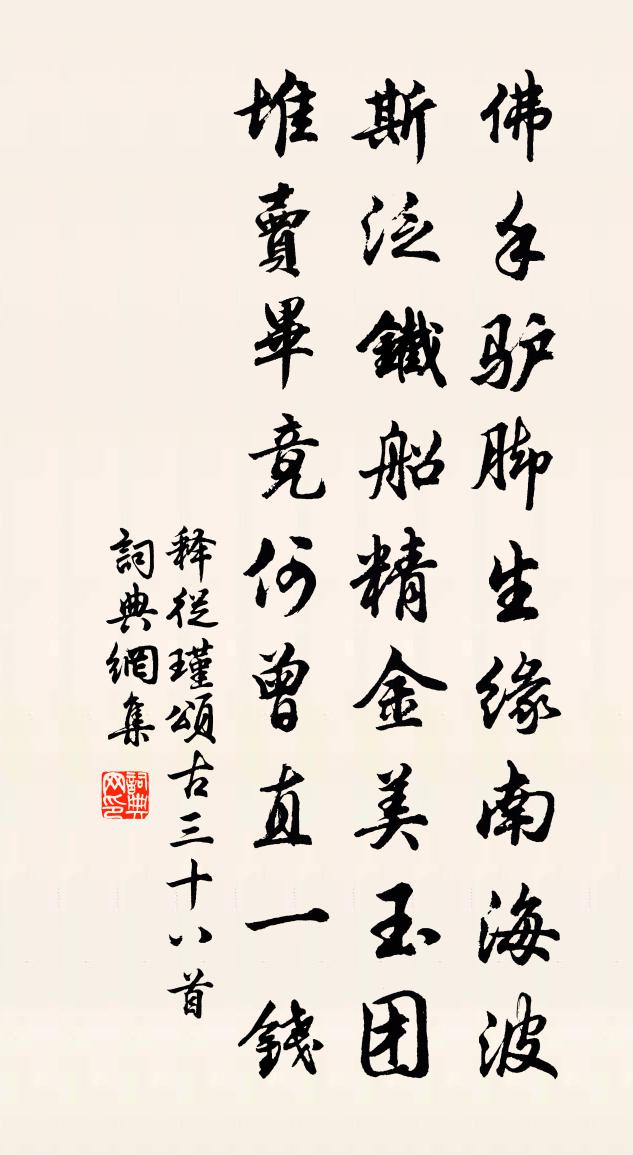 佛手驴脚生缘南海波
斯泛鐵船精金美玉团
堆賣畢竟何曾直一錢
释從瑾頌古三十八首
詞典網集
詞典网印